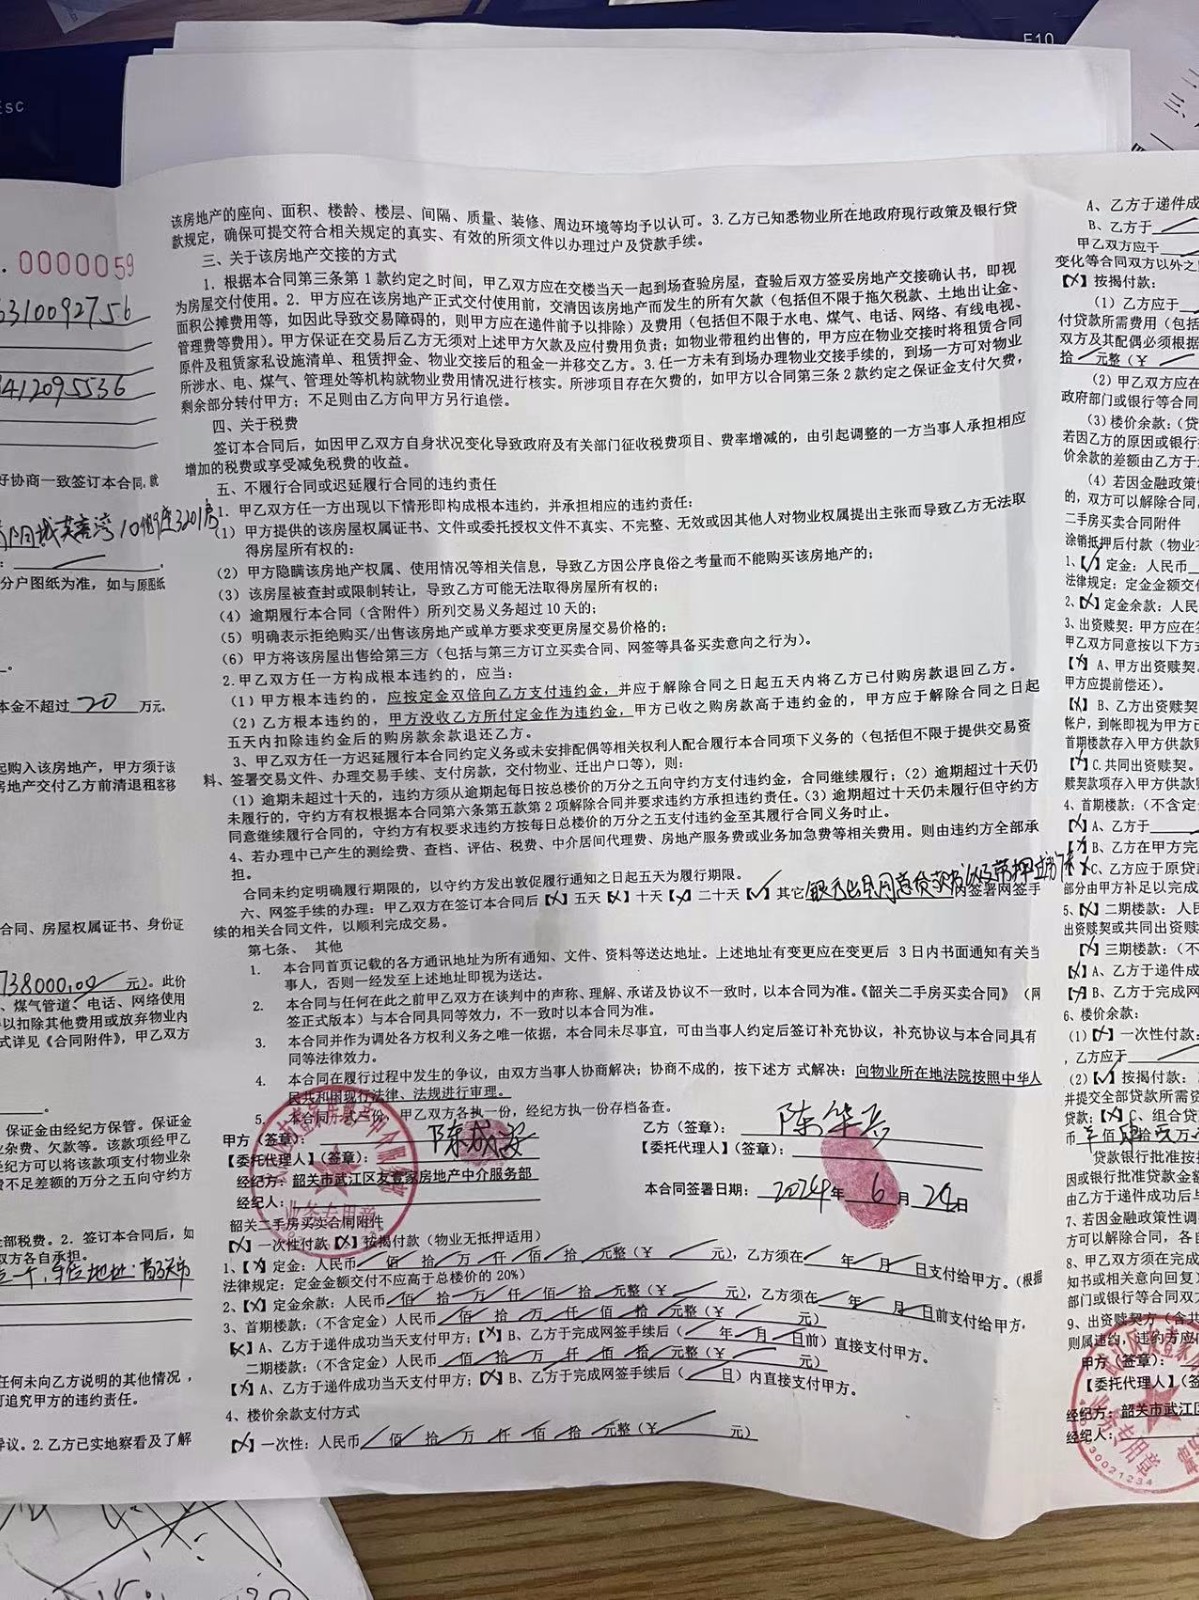 Esc
F10
.0000059
6310092756
412095536
好协商一致签订本合同,就
分户图纸为准,如与原图纸
本金不超过 20 万元,
起购入该房地产,甲方须于该
房地产交付乙方前清退租客移
合同、房屋权属证书、身份证
738000.00 元)。此价
、煤气管道、电话、网络使用
以扣除其他费用或放弃物业内
式详见《合同附件》,甲乙双方
保证金由经纪方保管。保证金
杂费、欠款等。该款项经甲乙
经纪方可以将该款项支付物业杂
费不足差额的万分之五向守约方
全部税费。2.签订本合同后,如
双方各自承担。
任何未向乙方说明的其他情况,
可追究甲方的违约责任。
异议。2.乙方已实地察看及了解
该房地产的座向、面积、楼龄、楼层、间隔、质量、装修、周边环境等均予以认可。3.乙方已知悉物业所在地政府现行政策及银行贷
款规定,确保可提交符合相关规定的真实、有效的所须文件以办理过户及贷款手续。
三、关于该房地产交接的方式
1.根据本合同第三条第1款约定之时间,甲乙双方应在交楼当天一起到场查验房屋,查验后双方签妥房地产交接确认书,即视
为房屋交付使用。2.甲方应在该房地产正式交付使用前,交清因该房地产而发生的所有欠款(包括但不限于拖欠税款、土地出让金、
面积公摊费用等,如因此导致交易障碍的,则甲方应在递件前予以排除)及费用(包括但不限于水电、煤气、电话、网络、有线电视、
管理费等费用)。甲方保证在交易后乙方无须对上述甲方欠款及应付费用负责;如物业带租约出售的,甲方应在物业交接时将租赁合同
原件及租赁家私设施清单、租赁押金、物业交接后的租金一并移交乙方。3.任一方未有到场办理物业交接手续的,到场一方可对物业
所涉水、电、煤气、管理处等机构就物业费用情况进行核实。所涉项目存在欠费的,如甲方以合同第三条2款约定之保证金支付欠费,
剩余部分转付甲方;不足则由乙方向甲方另行追偿。
四、关于税费
签订本合同后,如因甲乙双方自身状况变化导致政府及有关部门征收税费项目、费率增减的,由引起调整的一方当事人承担相应
增加的税费或享受减免税费的收益。
五、不履行合同或迟延履行合同的违约责任
1.甲乙双方任一方出现以下情形即构成根本违约,并承担相应的违约责任:
(1)甲方提供的该房屋权属证书、文件或委托授权文件不真实、不完整、无效或因其他人对物业权属提出主张而导致乙方无法取
得房屋所有权的;
(2)甲方隐瞒该房地产权属、使用情况等相关信息,导致乙方因公序良俗之考量而不能购买该房地产的;
(3)该房屋被查封或限制转让,导致乙方可能无法取得房屋所有权的;
(4)逾期履行本合同(含附件)所列交易义务超过10天的;
(5)明确表示拒绝购买/出售该房地产或单方要求变更房屋交易价格的;
(6)甲方将该房屋出售给第三方(包括与第三方订立买卖合同、网签等具备买卖意向之行为)。
2.甲乙双方任一方构成根本违约的,应当:
(1)甲方根本违约的,应按定金双倍向乙方支付违约金,并应于解除合同之日起五天内将乙方已付购房款退回乙方。
(2)乙方根本违约的,甲方没收乙方所付定金作为违约金,甲方已收之购房款高于违约金的,甲方应于解除合同之日起
五天内扣除违约金后的购房款余款退还乙方。
3、甲乙双方任一方迟延履行本合同约定义务或未安排配偶等相关权利人配合履行本合同项下义务的(包括但不限于提供交易资
料、签署交易文件、办理交易手续、支付房款,交付物业、迁出户口等),则:
(1)逾期未超过十天的,违约方须从逾期起每日按总楼价的万分之五向守约方支付违约金,合同继续履行;(2)逾期超过十天仍
未履行的,守约方有权根据本合同第六条第五款第2项解除合同并要求违约方承担违约责任。(3)逾期超过十天仍未履行但守约方
同意继续履行合同的,守约方有权要求违约方按每日总楼价的万分之五支付违约金至其履行合同义务时止。
4、若办理中已产生的测绘费、查档、评估、税费、中介居间代理费、房地产服务费或业务加急费等相关费用。则由违约方全部承
担。
合同未约定明确履行期限的,以守约方发出敦促履行通知之日起五天为履行期限。
六、网签手续的办理:甲乙双方在签订本合同后【✗】五天【✗】十天【✗】二十天【✓】其它 内签署网签手
续的相关合同文件,以顺利完成交易。
第七条、 其他
1. 本合同首页记载的各方通讯地址为所有通知、文件、资料等送达地址。上述地址有变更应在变更后 3日内书面通知有关当
事人,否则一经发至上述地址即视为送达。
2. 本合同与任何在此之前甲乙双方在谈判中的声称、理解、承诺及协议不一致时,以本合同为准。《韶关二手房买卖合同》(网
签正式版本)与本合同具同等效力,不一致时以本合同为准。
3. 本合同并作为调处各方权利义务之唯一依据,本合同未尽事宜,可由当事人约定后签订补充协议,补充协议与本合同具有
同等法律效力。
4. 本合同在履行过程中发生的争议,由双方当事人协商解决;协商不成的,按下述方 式解决:向物业所在地法院按照中华人
民共和国现行法律、法规进行审理。
5. 本合同一式三份,甲乙双方各执一份,经纪方执一份存档备查。
甲方(签章): 乙方(签章):陈华兵
【委托代理人】(签章): 【委托代理人】(签章):
经纪方:韶关市武江区友壹家房地产中介服务部
经纪人: 本合同签署日期:2024年6月24日
韶关二手房买卖合同附件
【✗】一次性付款【✗】按揭付款(物业无抵押适用)
1、【✗】定金:人民币 佰 拾 万 仟 佰 拾 元整(¥ 元),乙方须在 年 月 日支付给甲方。(根据
法律规定:定金金额交付不应高于总楼价的20%)
2、【✗】定金余款:人民币 佰 拾 万 仟 佰 拾 元整(¥ 元),乙方须在 年 月 日前支付给甲方,
3、首期楼款:(不含定金)人民币 佰 拾 万 仟 佰 拾 元整(¥ 元)
【✗】A、乙方于递件成功当天支付甲方;【✗】B、乙方于完成网签手续后( 年 月 日前)直接支付甲方。
二期楼款:(不含定金)人民币 佰 拾 万 仟 佰 拾 元整(¥ 元)
【✗】A、乙方于递件成功当天支付甲方;【✗】B、乙方于完成网签手续后( 日)内直接支付甲方。
4、楼价余款支付方式
【✗】一次性:人民币 佰 拾 万 仟 佰 拾 元整(¥ 元)
A、乙方于递件成
B、乙方于
甲乙双方应于
变化等合同双方以外之
【✗】按揭付款:
(1)乙方应于
付贷款所需费用(包括
双方及其配偶必须根据
拾 元整(¥
(2)甲乙双方应在
政府部门或银行等合同
(3)楼价余款:(贷
若因乙方的原因或银行
价余款的差额由乙方于
(4)若因金融政策
的,双方可以解除合同
二手房买卖合同附件
涂销抵押后付款(物业
1、【✓】定金:人民币
法律规定:定金金额交付
2、【✗】定金余款:人民
3、出资赎契:甲方应在
甲乙双方同意按以下方式
【✗】A、甲方出资赎契
甲方应提前偿还)。
【✗】B、乙方出资赎契
帐户,到帐即视为甲方已
首期楼款存入甲方供款
【✗】C.共同出资赎契。
赎契款项存入甲方供款
4、首期楼款:(不含定
【✗】A、乙方于
【✗】B、乙方在甲方完
【✗】C、乙方应于原贷
部分由甲方补足以完成
5、【✗】二期楼款:人民
出资赎契或共同出资赎契
【✗】三期楼款:(不
【✗】A、乙方于递件成
【✗】B、乙方于完成网
6、楼价余款:
(1)【✗】一次性付款:
,乙方应于
(2)【✓】按揭付款:
并提交全部贷款所需资
贷款:【✗】C、组合贷
贷款银行批准按
因或银行批准贷款金额
由乙方于递件成功后与
7、若因金融政策性调
方可以解除合同,各自
8、甲乙双方须在完成
知书或相关意向回复)
部门或银行等合同双方
9、出资赎契方(含共
则属违约,违约方应
甲方(签章):
【委托代理人】(签
经纪方:韶关市武江区
经纪人: